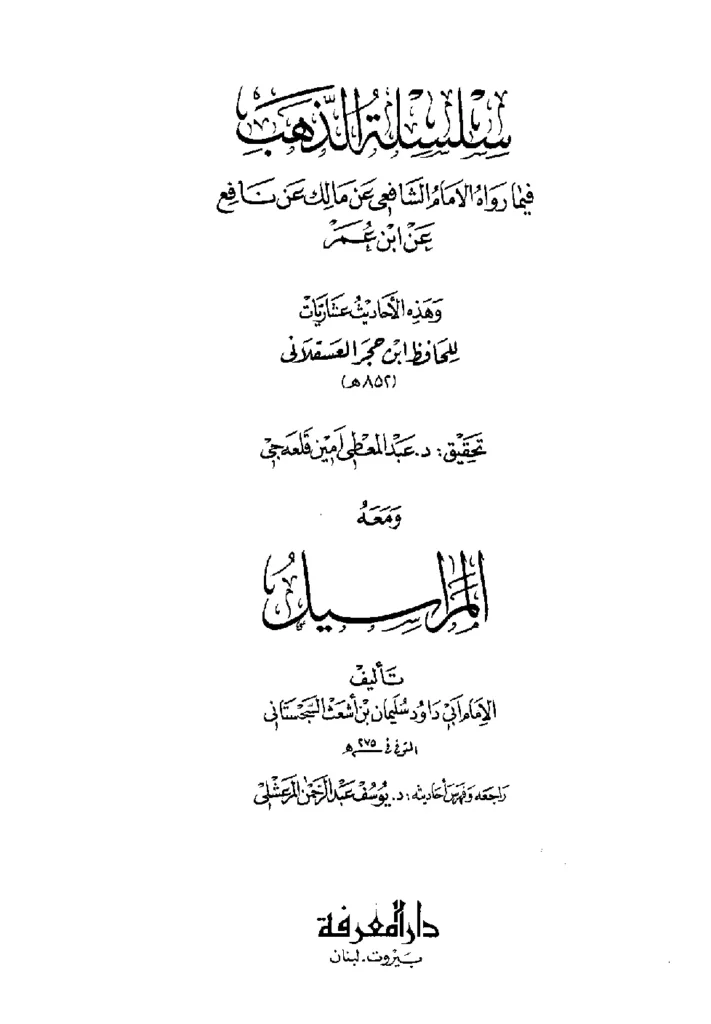 سلسلة الذهب
فيما رواه الإمام الشافعي عن مالك عن نافع
عن ابن عمر
وهذه الأحاديث عشاريات
للحافظ ابن حجر العسقلاني
(٨٥٢ هـ)
تحقيق: د. عبد المعطي أمين قلعه جي
ومعه
المراسيل
تأليف
الإمام أبي داود سليمان بن أشعث السجستاني
المتوفى في ٢٧٥ هـ
راجعه وفهرس أحاديثه: د. يوسف عبد الرحمن المرعشلي
دار المعرفة
بيروت - لبنان